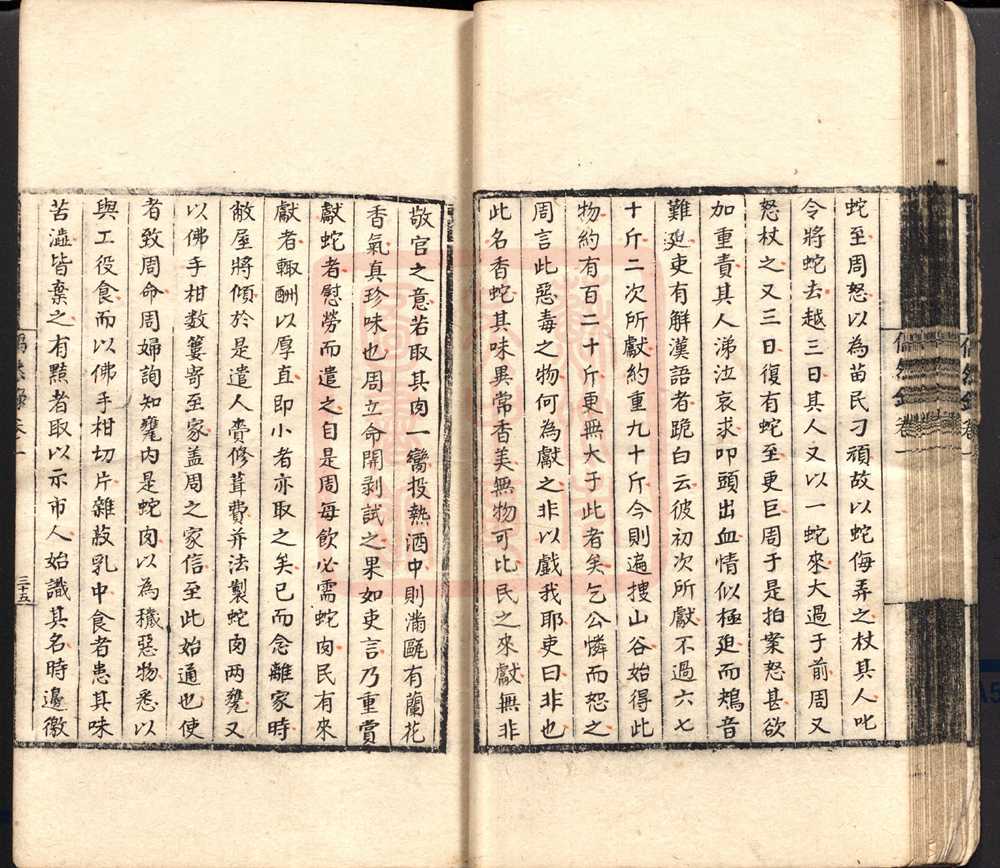 蛇至周怒以為苗民刁頑故以蛇侮弄之杖其人叱
令將蛇去越三日其人又以一蛇來大過于前周又
怒杖之又三日復有蛇至更巨周于是拍案怒甚欲
加重責其人涕泣哀求叩頭出血情似極廹而鴂音
難廹吏有解漢語者跪白云彼初次所獻不過六七
十斤二次所獻約重九十斤今則遍搜山谷始得此
物約有百二十斤更無大于此者矣乞公憐而恕之
周言此惡毒之物何為獻之非以戲我耶吏曰非也
此名香蛇其味異常香美無物可比民之來獻無非
敬官之意若取其肉一臠投熱酒中則滿甌有蘭花
香氣真珍味也周立命開剥試之果如吏言乃重賞
獻蛇者慰勞而遣之自是周每飲必需蛇肉民有來
獻者輙酬以厚直即小者亦取之矣已而念離家時
敝屋將傾於是遣人賫修葺費并法製蛇肉两甕又
以佛手柑数簍寄至家盖周之家信至此始通也使
者致周命周婦詢知甕内是蛇肉以為穢惡物悉以
與工役食而以佛手柑切片雜菽乳中食者患其味
苦澁皆棄之有黠者取以示市人始識其名時邊徼
偶然錄卷一
三十五